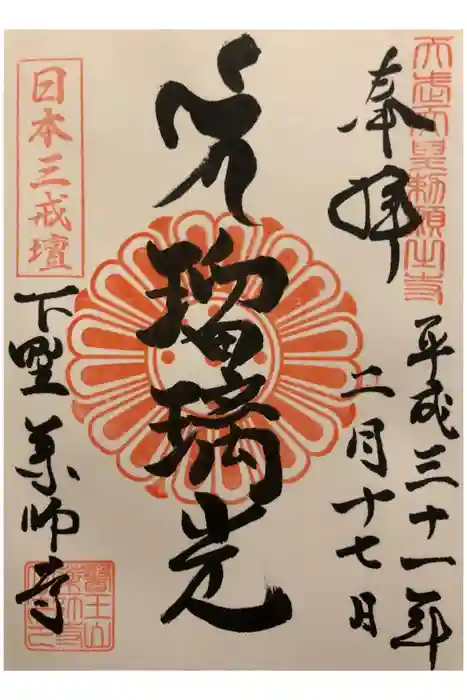 天武天皇勅願出寺
奉拝
平成三十一年
二月十七日
瑠璃光
日本三戒壇
下野薬師寺